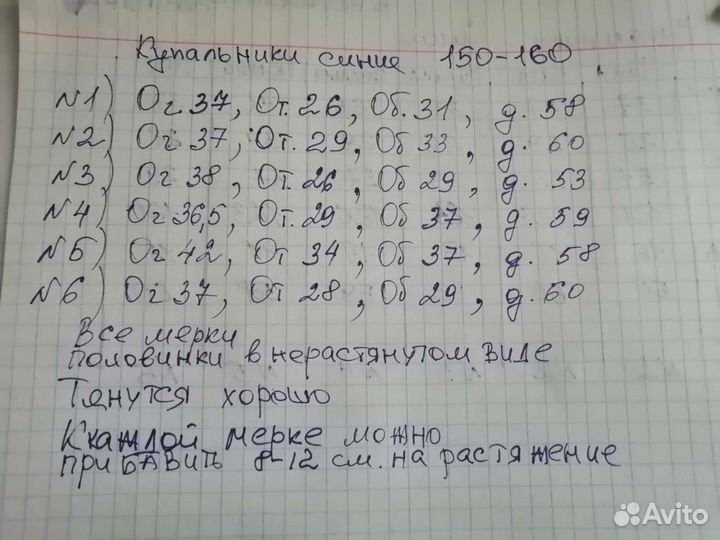 Купальники синие 150-160
N1) Ог. 37, От. 26, Об. 31, д. 58
N2) Ог 37, От. 29, Об 33, д. 60
N3) Ог 38, От. 26, Об 29, д. 53
N4) Ог 36,5, От. 29, Об 37, д. 59
N5) Ог 42, От 34, Об 37, д. 58
N6) Ог 37, От 28, Об 29, д. 60
Все мерки
половинки в нерастянутом виде
Тянутся хорошо
К каждой мерке можно
прибавить 8-12 см. на растяжение
Avito